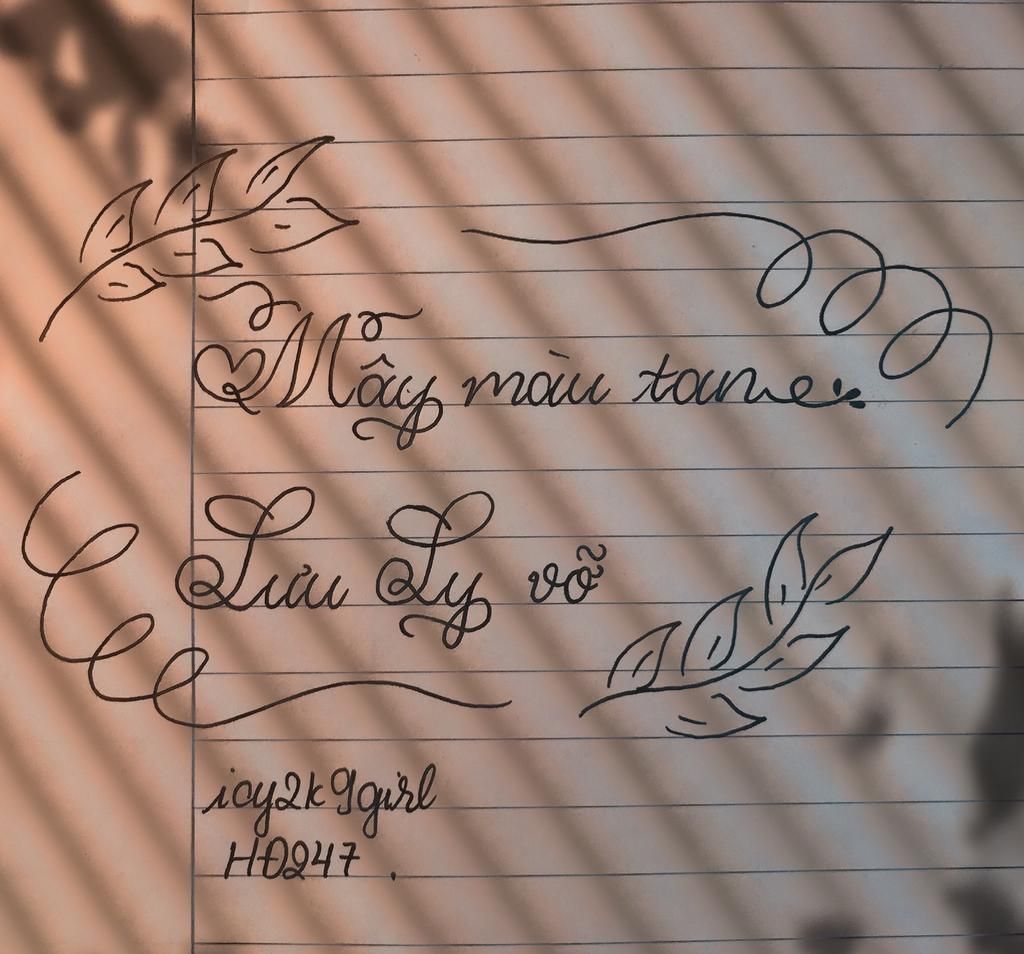 Mẫy màu tan
Lưu Ly vỡ
icy2k9girl
HĐ247.